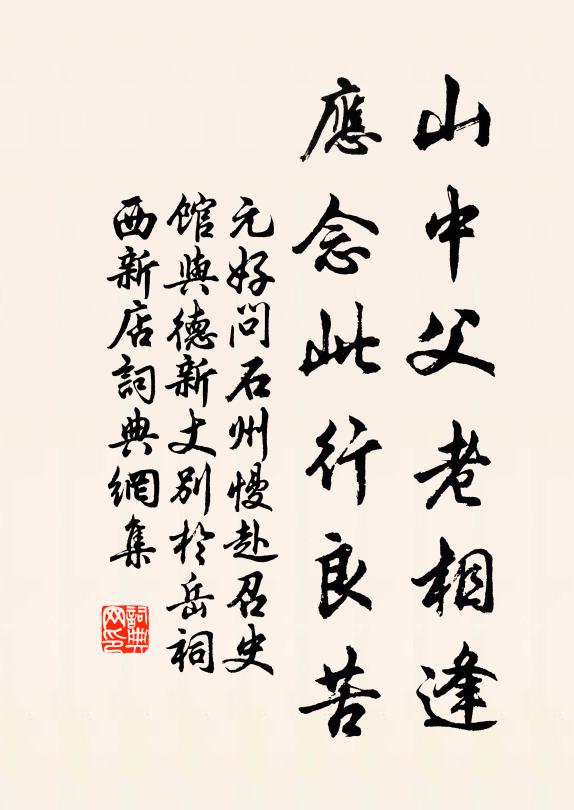 山中父老相逢
應念此行良苦
元好問石州慢赴召史
館與德新丈別於岳祠
西新店詞典網集
詞典网印